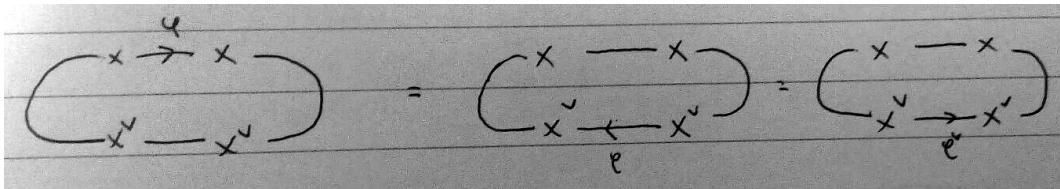 φ
x → x = x — x = x — x
x^∨ — x^∨ x^∨ ← x^∨ x^∨ → x^∨
φ φ^∨